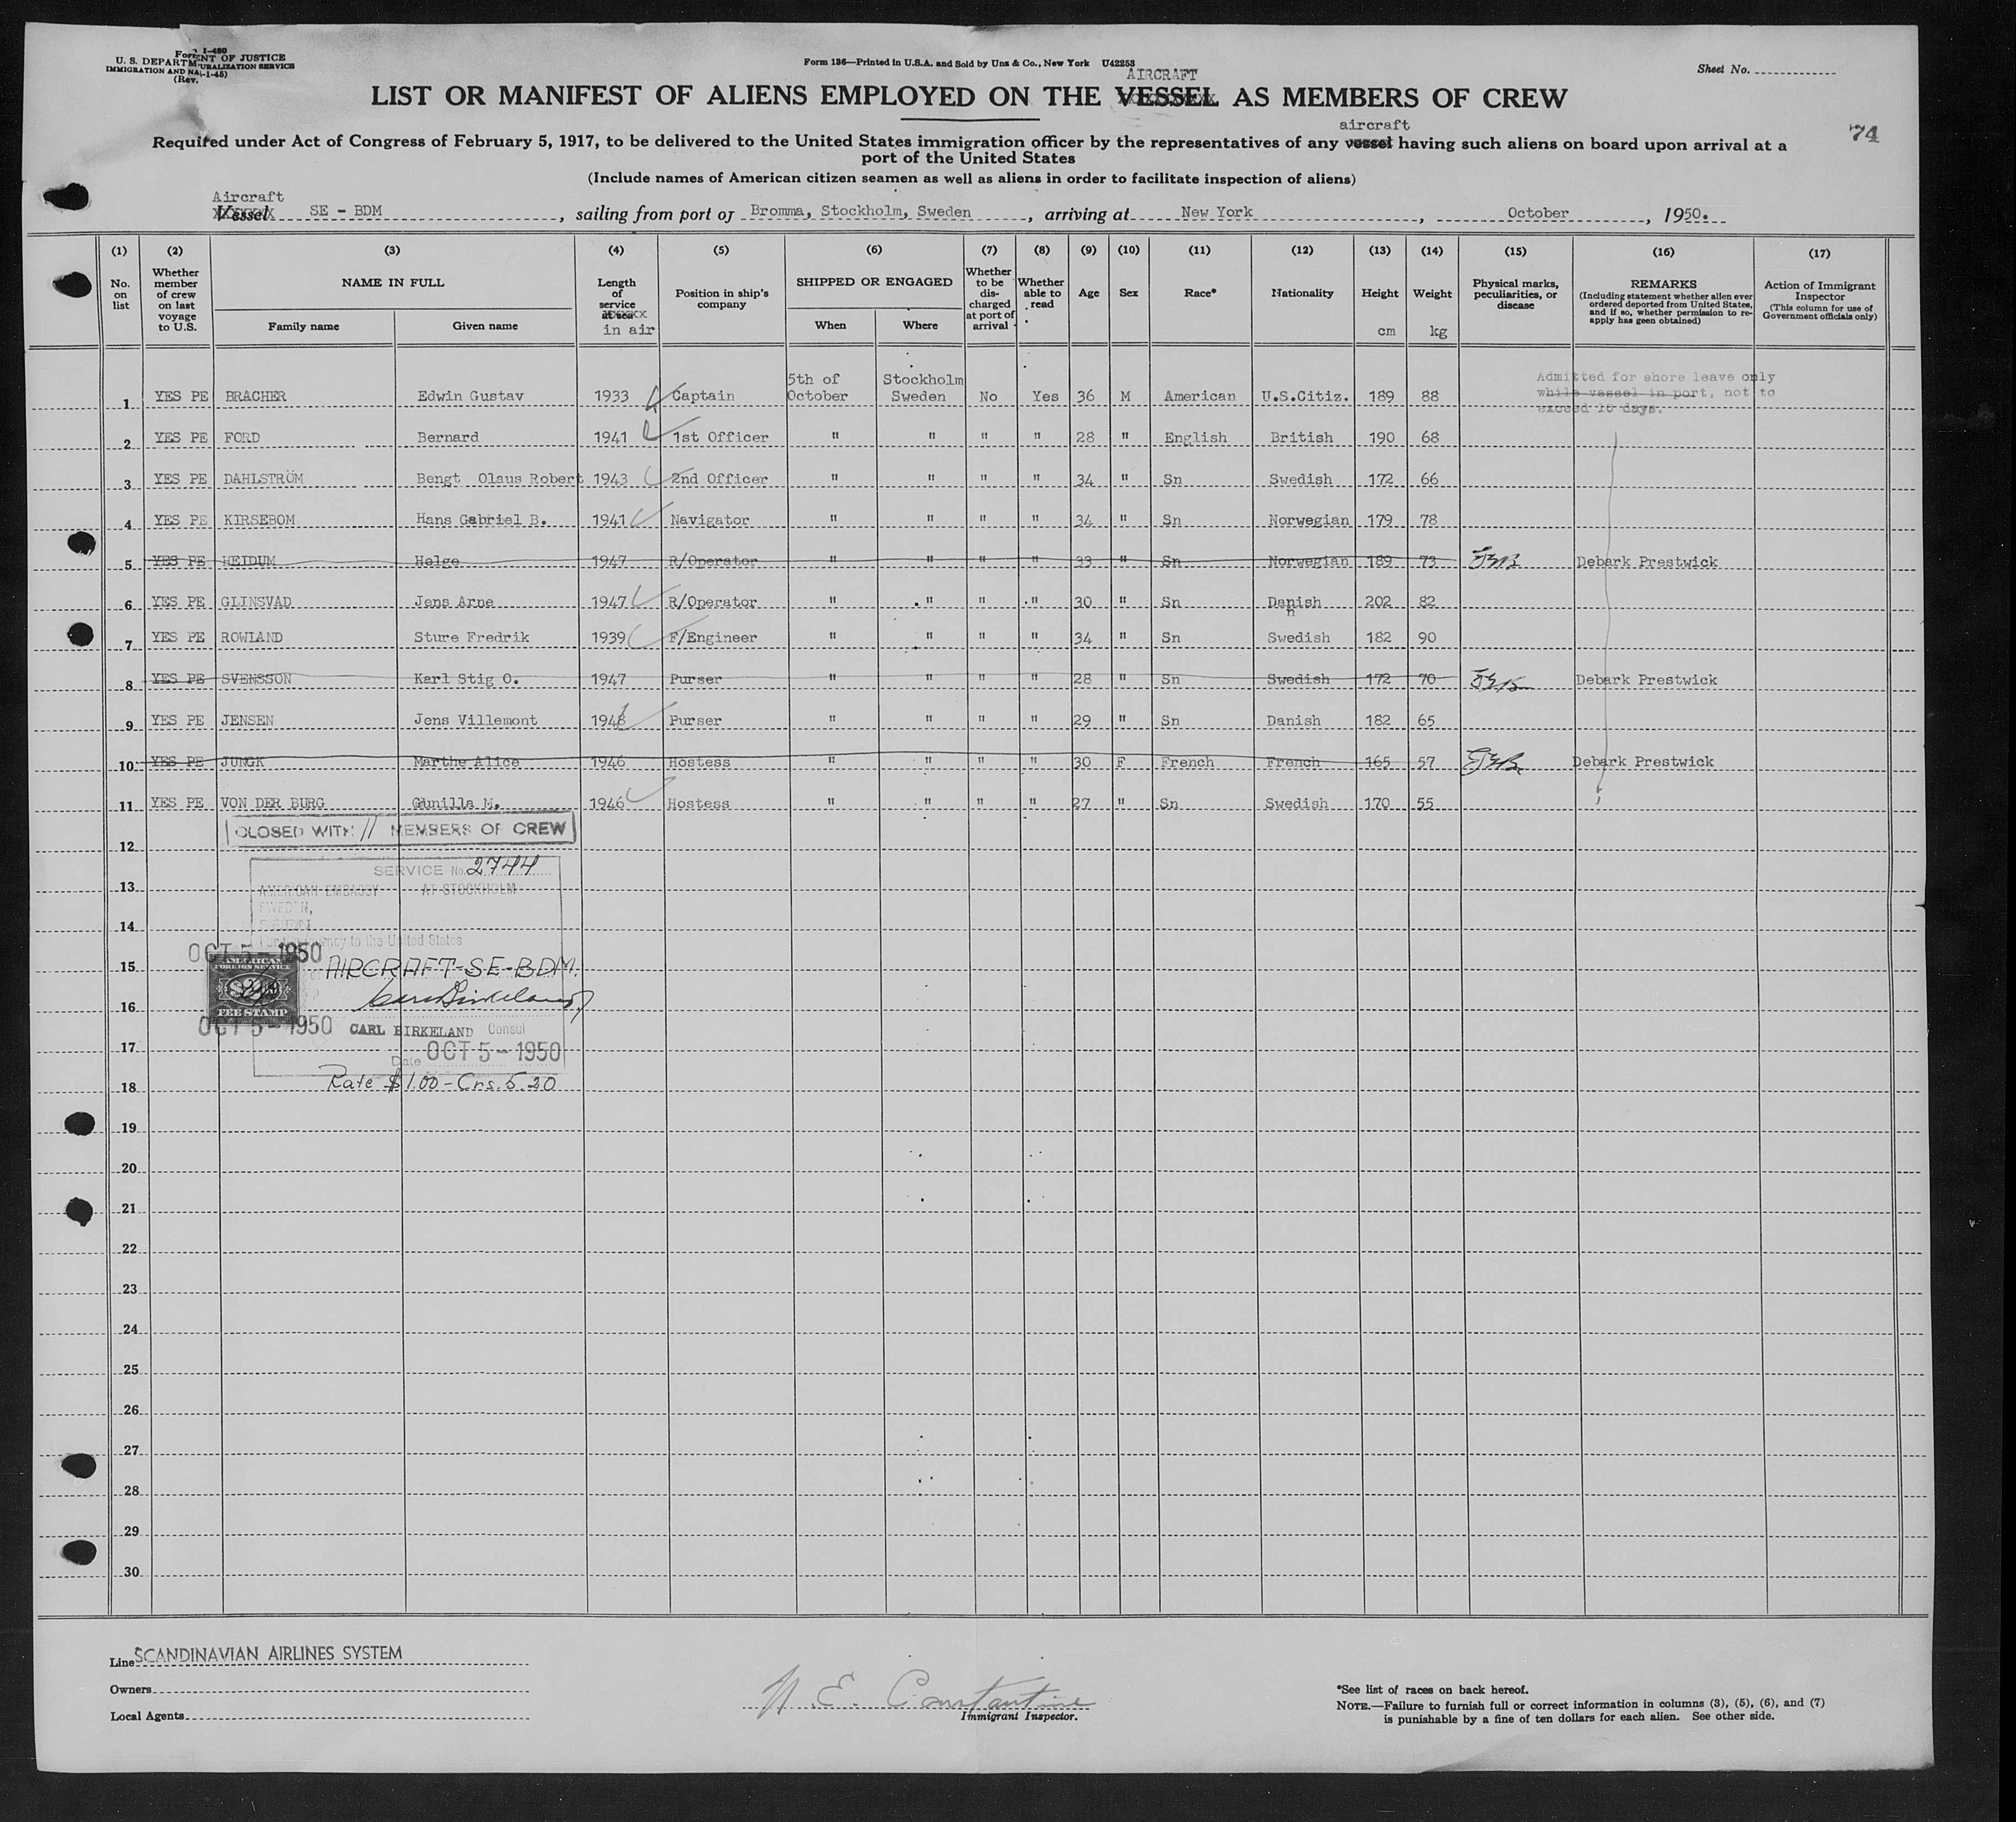 Form I-480
U. S. DEPARTMENT OF JUSTICE
IMMIGRATION AND NATURALIZATION SERVICE
(Rev. -1-45)
Form 136—Printed in U.S.A. and Sold by Unz & Co., New York U42253
Sheet No.
AIRCRAFT
LIST OR MANIFEST OF ALIENS EMPLOYED ON THE VESSEL AS MEMBERS OF CREW
aircraft
74
Required under Act of Congress of February 5, 1917, to be delivered to the United States immigration officer by the representatives of any vessel having such aliens on board upon arrival at a
port of the United States
(Include names of American citizen seamen as well as aliens in order to facilitate inspection of aliens)
Aircraft
Vessel SE - BDM, sailing from port of Bromma, Stockholm, Sweden, arriving at New York, October, 1950.
(1) (2) (3) (4) (5) (6) (7) (8) (9) (10) (11) (12) (13) (14) (15) (16) (17)
No. on list
Whether member of crew on last voyage to U.S.
NAME IN FULL
Family name
Given name
Length of service at sea
in air
Position in ship's company
SHIPPED OR ENGAGED
When
Where
Whether to be discharged at port of arrival
Whether able to read
Age
Sex
Race*
Nationality
Height
cm
Weight
kg
Physical marks, peculiarities, or disease
REMARKS
(Including statement whether alien ever ordered deported from United States, and if so, whether permission to re-apply has geen obtained)
Action of Immigrant Inspector
(This column for use of Government officials only)
Admitted for shore leave only
while vessel in port, not to
exceed 10 days.
1 YES PE BRACHER Edwin Gustav 1933 Captain 5th of October Stockholm Sweden No Yes 36 M American U.S.Citiz. 189 88
2 YES PE FORD Bernard 1941 1st Officer " " " " 28 " English British 190 68
3 YES PE DAHLSTRÖM Bengt Olaus Robert 1943 2nd Officer " " " " 34 " Sn Swedish 172 66
4 YES PE KIRSEBOM Hans Gabriel B. 1941 Navigator " " " " 34 " Sn Norwegian 179 78
5 YES PE HEIDUM Helge 1947 R/Operator " " " " 33 " Sn Norwegian 189 73 Debark Prestwick
6 YES PE GLINSVAD Jens Arne 1947 R/Operator " " " " 30 " Sn Danish 202 82
7 YES PE ROWLAND Sture Fredrik 1939 F/Engineer " " " " 34 " Sn Swedish 182 90
8 YES PE SVENSSON Karl Stig O. 1947 Purser " " " " 28 " Sn Swedish 172 70 Debark Prestwick
9 YES PE JENSEN Jens Villemont 1948 Purser " " " " 29 " Sn Danish 182 65
10 YES PE JUNGK Marthe Alice 1946 Hostess " " " " 30 F French French 165 57 Debark Prestwick
11 YES PE VON DER BURG Gunilla M. 1946 Hostess " " " " 27 " Sn Swedish 170 55
CLOSED WITH 11 MEMBERS OF CREW
12
SERVICE No. 2744
13
AMERICAN EMBASSY AT STOCKHOLM
SWEDEN,
14
to the United States
OCT 5 - 1950
AMERICAN
FOREIGN SERVICE
15 AIRCRAFT-SE-BDM.
16
FEE STAMP
OCT 5 - 1950 CARL BIRKELAND Consul
17
Date OCT 5 - 1950
18 Rate $1.00 - Crs. 5.20
19
20
21
22
23
24
25
26
27
28
29
30
Line SCANDINAVIAN AIRLINES SYSTEM
Owners
Local Agents
N. E. Constantine
Immigrant Inspector.
*See list of races on back hereof.
NOTE.—Failure to furnish full or correct information in columns (3), (5), (6), and (7)
is punishable by a fine of ten dollars for each alien. See other side.